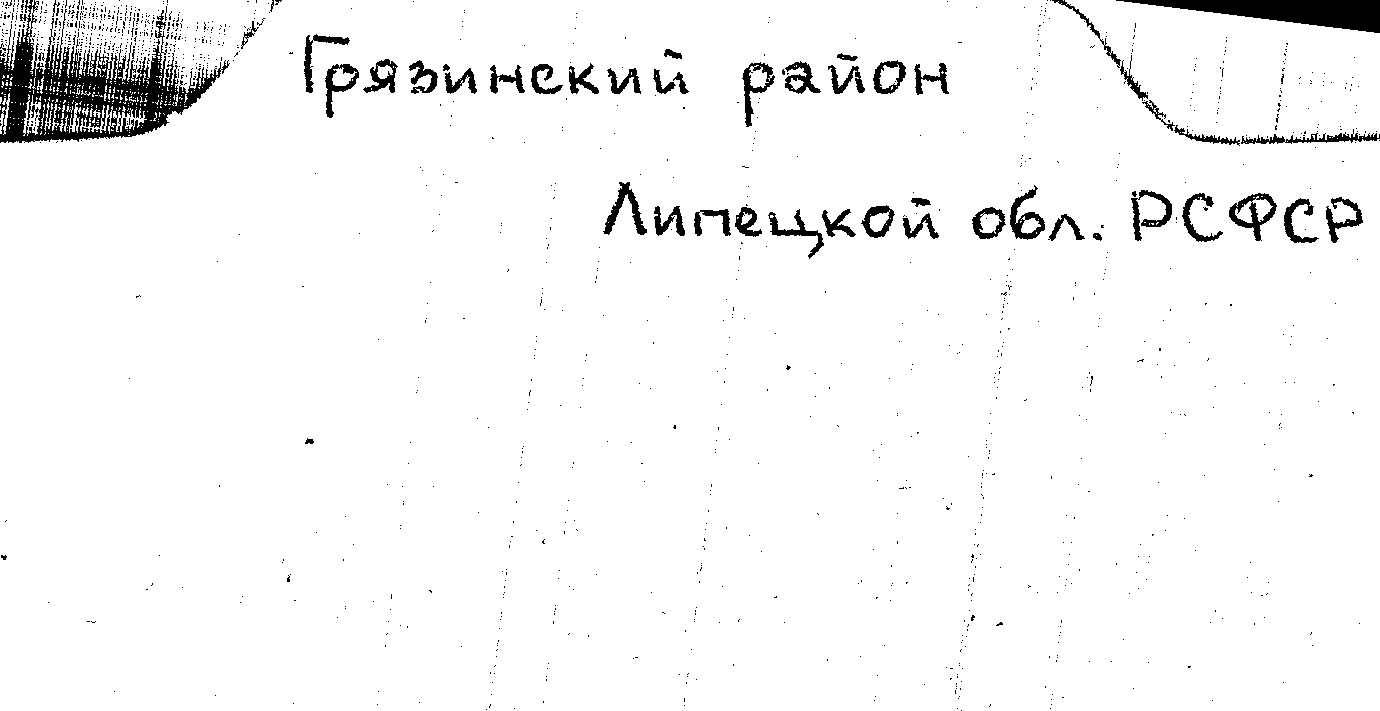 Грязинский район
Липецкой обл. РСФСР